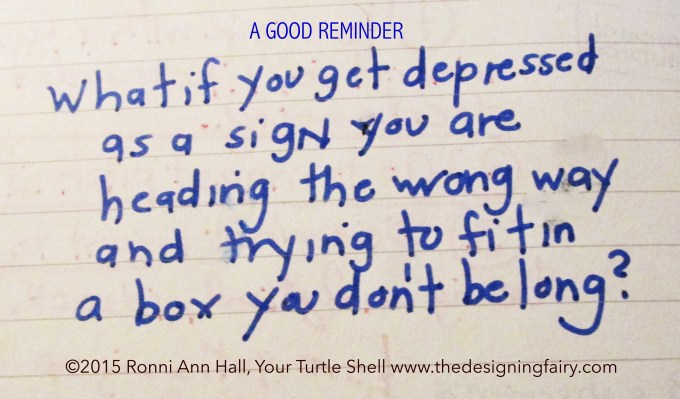 A GOOD REMINDER
What if you get depressed
as a sign you are
heading the wrong way
and trying to fit in
a box you don't belong?
©2015 Ronni Ann Hall, Your Turtle Shell www.thedesigningfairy.com